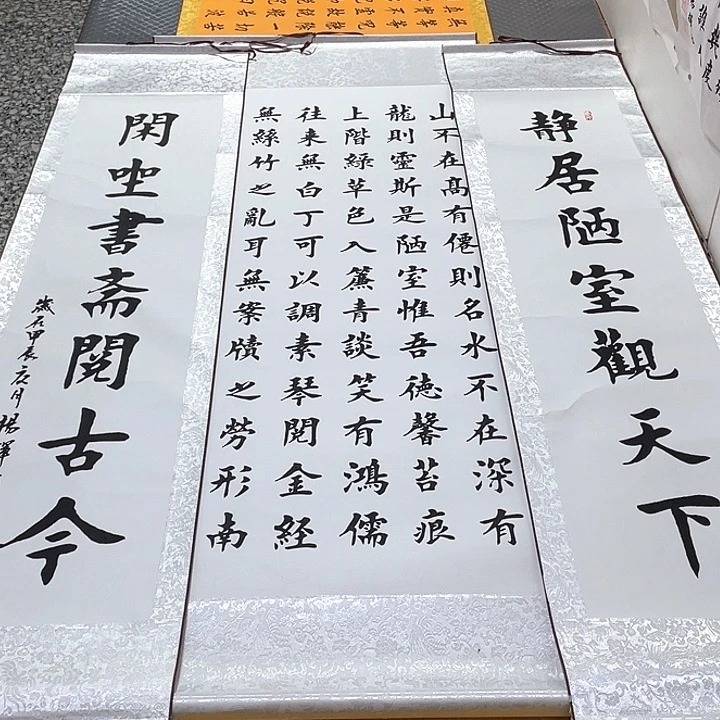 静居陋室觀天下
山不在髙有僊則名水不在深有
龍則靈斯是陋室惟吾德馨苔痕
上階緑草色入簾青談笑有鴻儒
往来無白丁可以調素琴閲金経
無絲竹之亂耳無案牘之勞形南
閑坐書斋閲古今
歲在甲辰